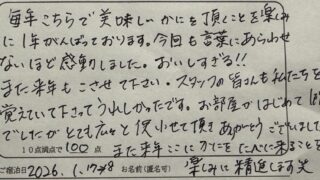 毎年こちらで美味しいかにを頂くことを楽しみ
に1年がんばっております。今回も言葉にあらわせ
ないほど感動しました。おいしすぎる!!
また来年もこさせて下さい。スタッフの皆さんも私たちを
覚えていて下さってうれしかったです。お部屋がはじめて
でしたがとても広々と使わせて頂きありがとうございました
10点満点で100点 また来年ここにかにをたべに来ること
ご宿泊日 2026.1.17〜18 お名前(匿名可) 楽しみに精進します